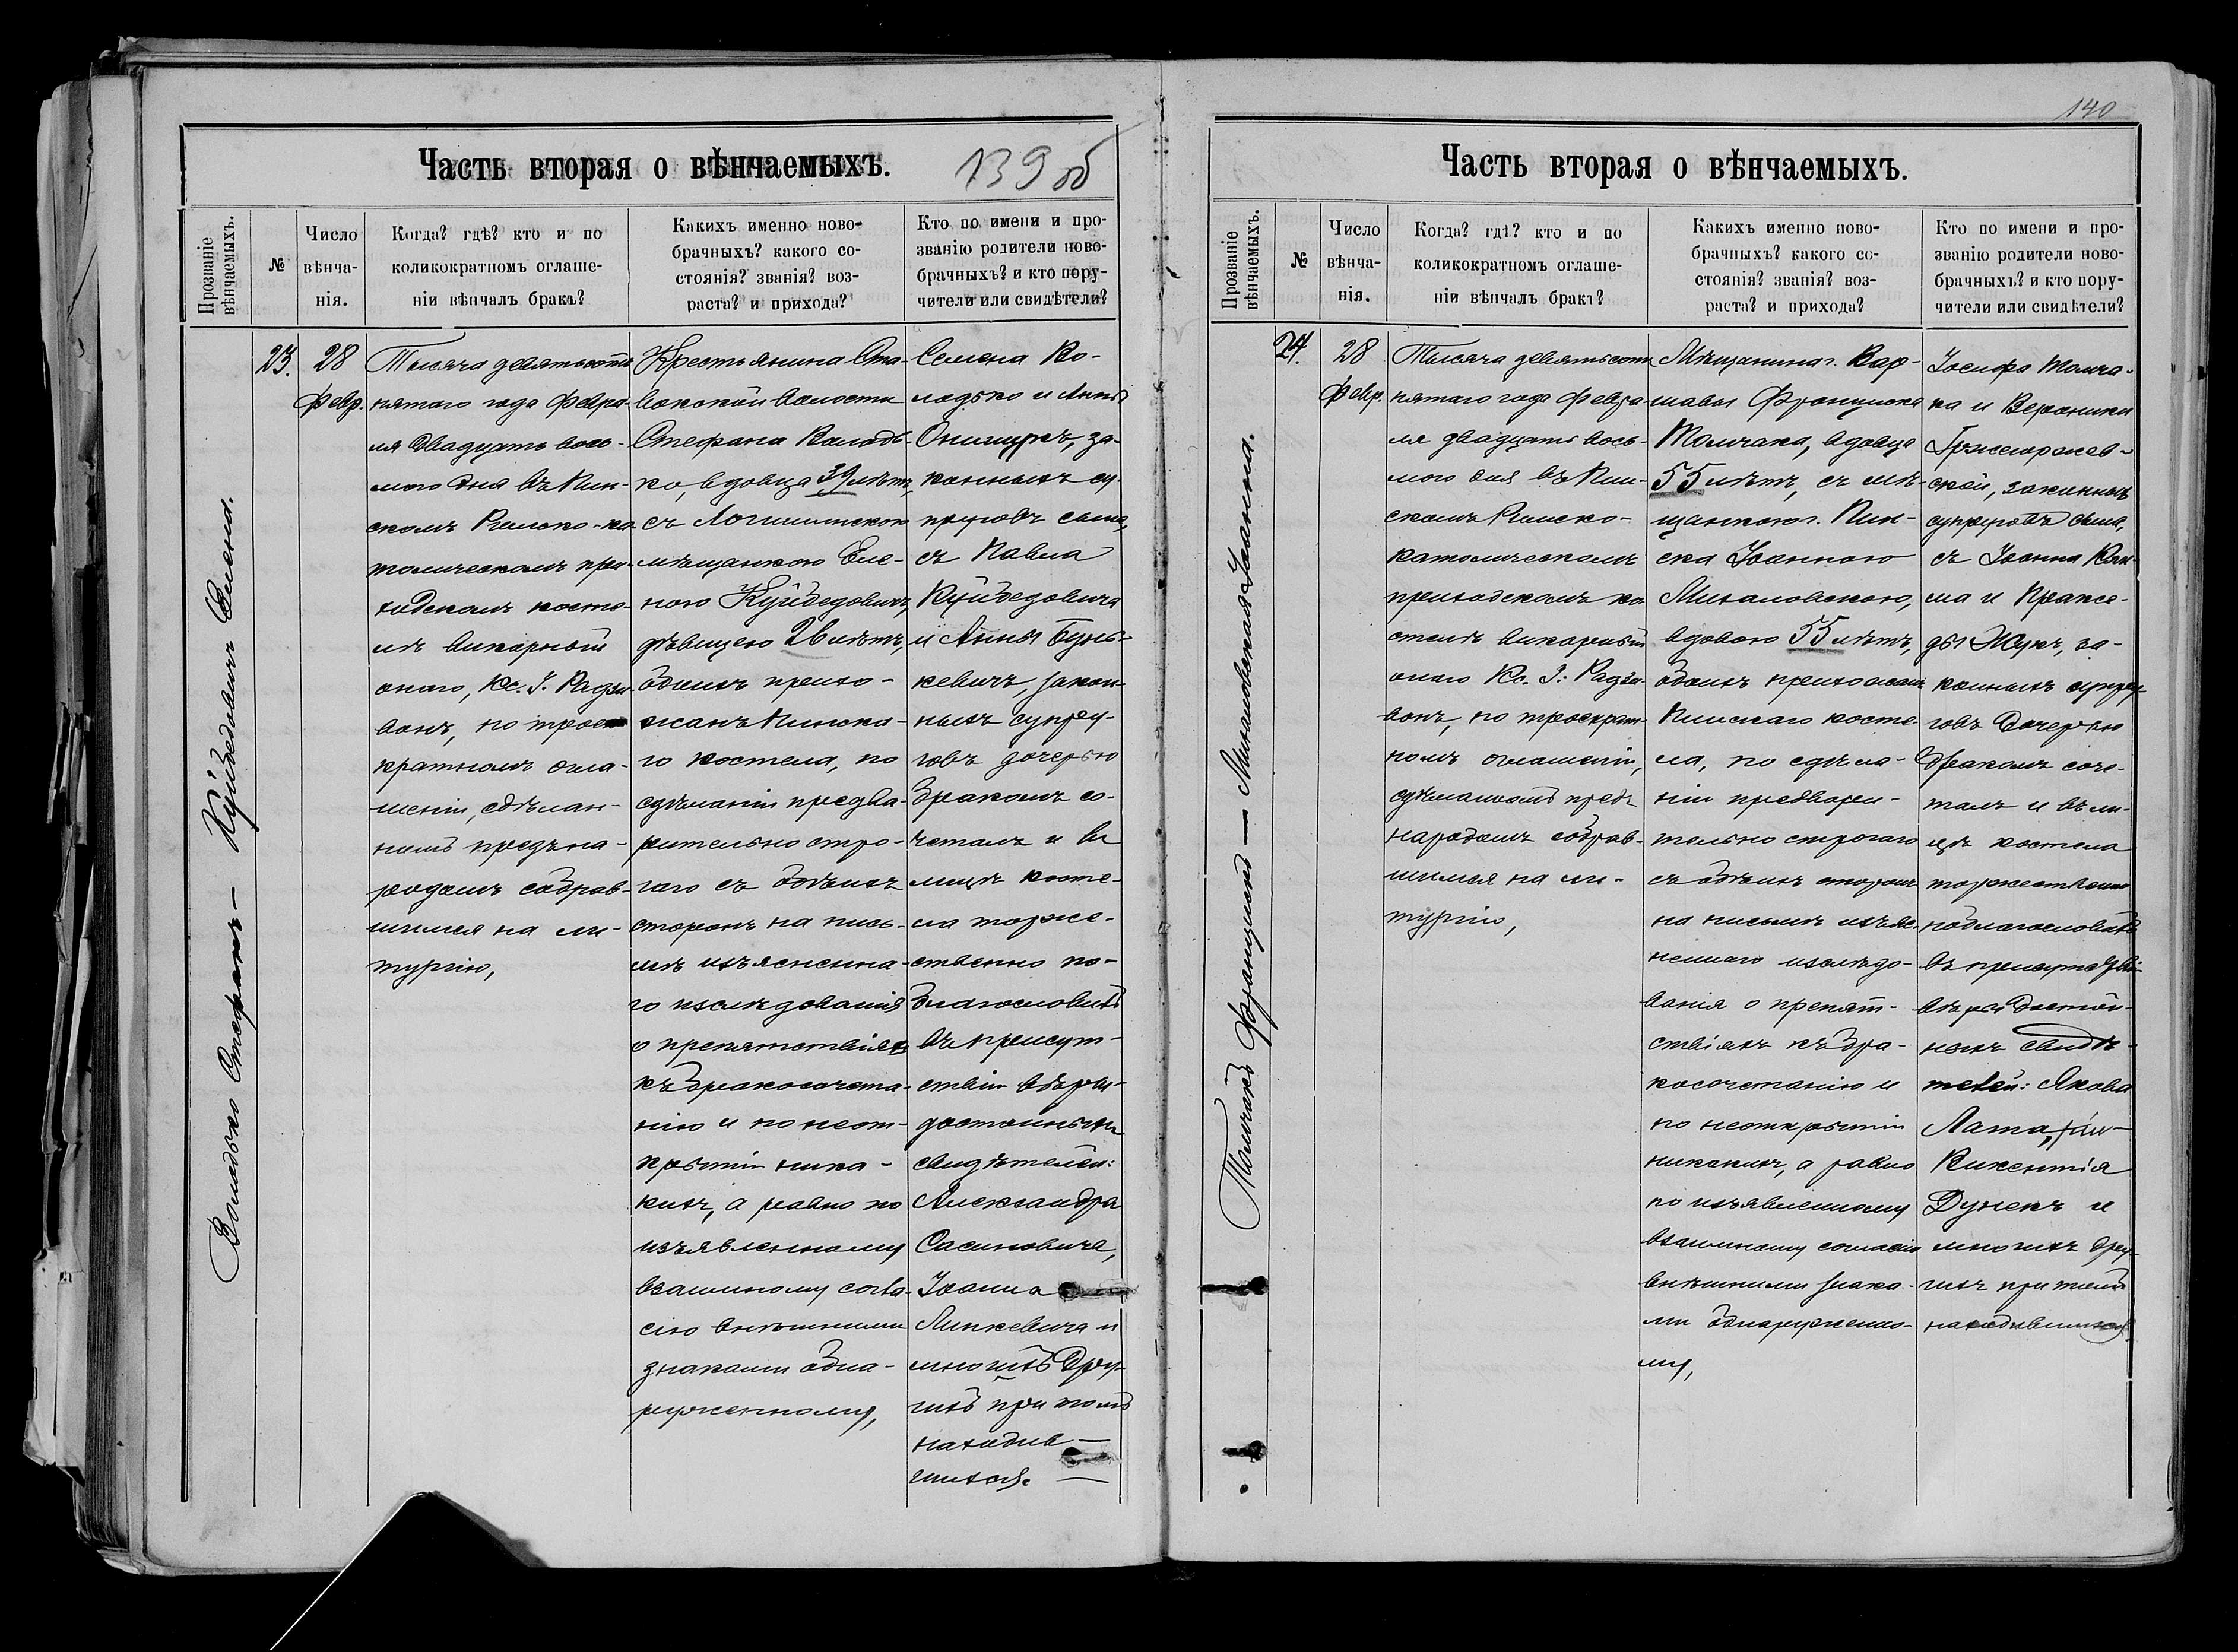 Часть вторая о вѣнчаемыхъ.
139 об
Прозваніе
вѣнчаемыхъ.
№
Число
вѣнча-
нія.
Когда? гдѣ? кто и по
коликократномъ оглаше-
ніи вѣнчалъ бракъ?
Какихъ именно ново-
брачныхъ? какого со-
стоянія? званія? воз-
раста? и прихода?
Кто по имени и про-
званію родители ново-
брачныхъ? и кто пору-
чители или свидѣтели?
Володько Стефанъ — Куйбедовичъ Елена.
23.
28
Февр.
Тысяча девятьсотъ
пятаго года Февра-
ля двадцать вось-
мого дня въ Пин-
скомъ Римско-ка-
толическомъ при-
ходскомъ косте-
лѣ викарный
онаго, Кс. І. Радзи-
вонъ, по трое-
кратномъ огла-
шеніи, сдѣлан-
номъ предъ на-
родомъ собрав-
шимся на ли-
тургію,
Крестьянина Ста-
вокской волости
Стефана Володь-
ко, вдовца 39 лѣтъ,
съ Логишинскою
мѣщанкою Еле-
ною Куйбедовичъ,
дѣвицею 26 лѣтъ,
обоихъ прихо-
жанъ Пинска-
го костела, по
сдѣланіи предва-
рительно стро-
гаго съ обѣихъ
сторонъ на пись-
мѣ изъясненна-
го изслѣдованія
о препятствіяхъ
къ бракосочета-
нію и по неот-
крытіи ника-
кихъ, а равно по
изъявленному
взаимному согла-
сію внѣшними
знаками обна-
руженному,
Семена Во-
лодько и Анны
Онищукъ, за-
конныхъ су-
пруговъ сына,
съ Павла
Куйбедовича
и Анны Бунь-
кевичъ, закон-
ныхъ супру-
говъ дочерью
бракомъ со-
четалъ и въ
лицѣ косте-
ла торже-
ственно по-
благословилъ
въ присут-
ствіи вѣры-
достойныхъ
свидѣтелей:
Александра
Сасиновича,
Іоанна
Линкевича и
многихъ дру-
гихъ при томъ
находив-
шихся.
140
Часть вторая о вѣнчаемыхъ.
Прозваніе
вѣнчаемыхъ.
№
Число
вѣнча-
нія.
Когда? гдѣ? кто и по
коликократномъ оглаше-
ніи вѣнчалъ бракъ?
Какихъ именно ново-
брачныхъ? какого со-
стоянія? званія? воз-
раста? и прихода?
Кто по имени и про-
званію родители ново-
брачныхъ? и кто пору-
чители или свидѣтели?
Толчакъ Францишкъ — Михаловская Іоанна.
24.
28
Февр.
Тысяча девятьсотъ
пятаго года Февра-
ля двадцать вось-
мого дня въ Пин-
скомъ Римско-
католическомъ
приходскомъ ко-
стелѣ викарный
онаго Кс. І. Радзи-
вонъ, по троекрат-
номъ оглашеніи,
сдѣланномъ предъ
народомъ собрав-
шимся на ли-
тургію,
Мѣщанина г. Вар-
шавы Францишка
Толчака, вдовца
55 лѣтъ, съ мѣ-
щанкою г. Пин-
ска Іоанною
Михаловскою,
вдовою 55 лѣтъ,
обоихъ прихожанъ
Пинскаго косте-
ла, по сдѣла-
ніи предвари-
тельно строгаго
съ обѣихъ сторонъ
на письмѣ изъяс-
неннаго изслѣдо-
ванія о препят-
ствіяхъ къ бра-
косочетанію и
по неоткрытіи
никакихъ, а равно
по изъявленному
взаимному согласію
внѣшними знака-
ми обнаруженно-
му,
Іосифа Толча-
ка и Вероники
скей, законныхъ
супруговъ сына,
съ Іоанна
и Праксе-
ды Жукъ, за-
конныхъ супру-
говъ дочерью
бракомъ соче-
талъ и въ ли-
цѣ костела
торжественно
поблагословилъ
въ присутствіи
вѣры достой-
ныхъ свидѣ-
телей: Якова
Лата,
Викентія
Дунекъ и
многихъ дру-
гихъ при томъ
находившихся.